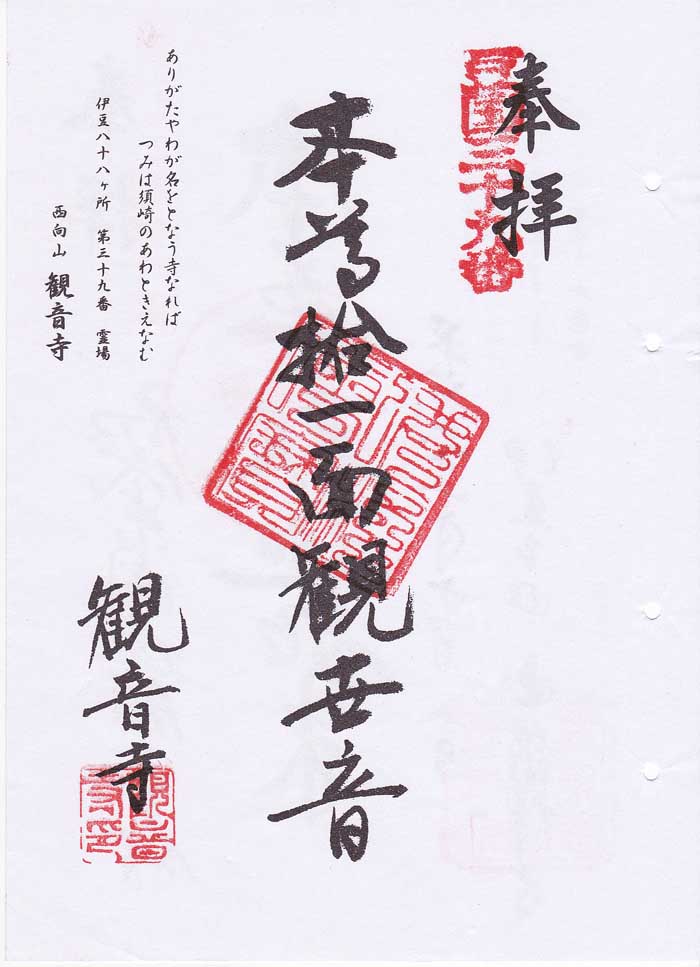 奉拝
本尊拾一面観世音
観音寺
ありがたやわが名をとなう寺なれば
つみは須崎のあわときえなむ
伊豆八十八ヶ所 第三十九番 霊場
西向山 観音寺